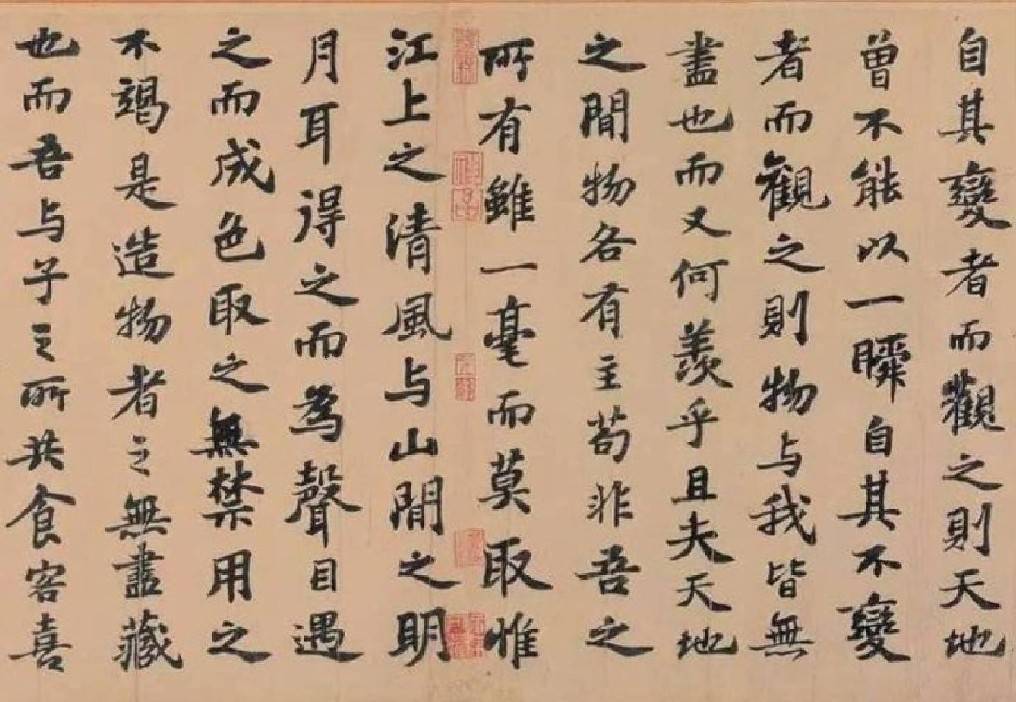 自其變者而觀之則天地
曾不能以一瞬自其不變
者而觀之則物与我皆無
盡也而又何羨乎且夫天地
之間物各有主苟非吾之
所有雖一毫而莫取惟
江上之清風与山間之明
月耳得之而為聲目遇
之而成色取之無禁用之
不竭是造物者之無盡藏
也而吾与子之所共食客喜